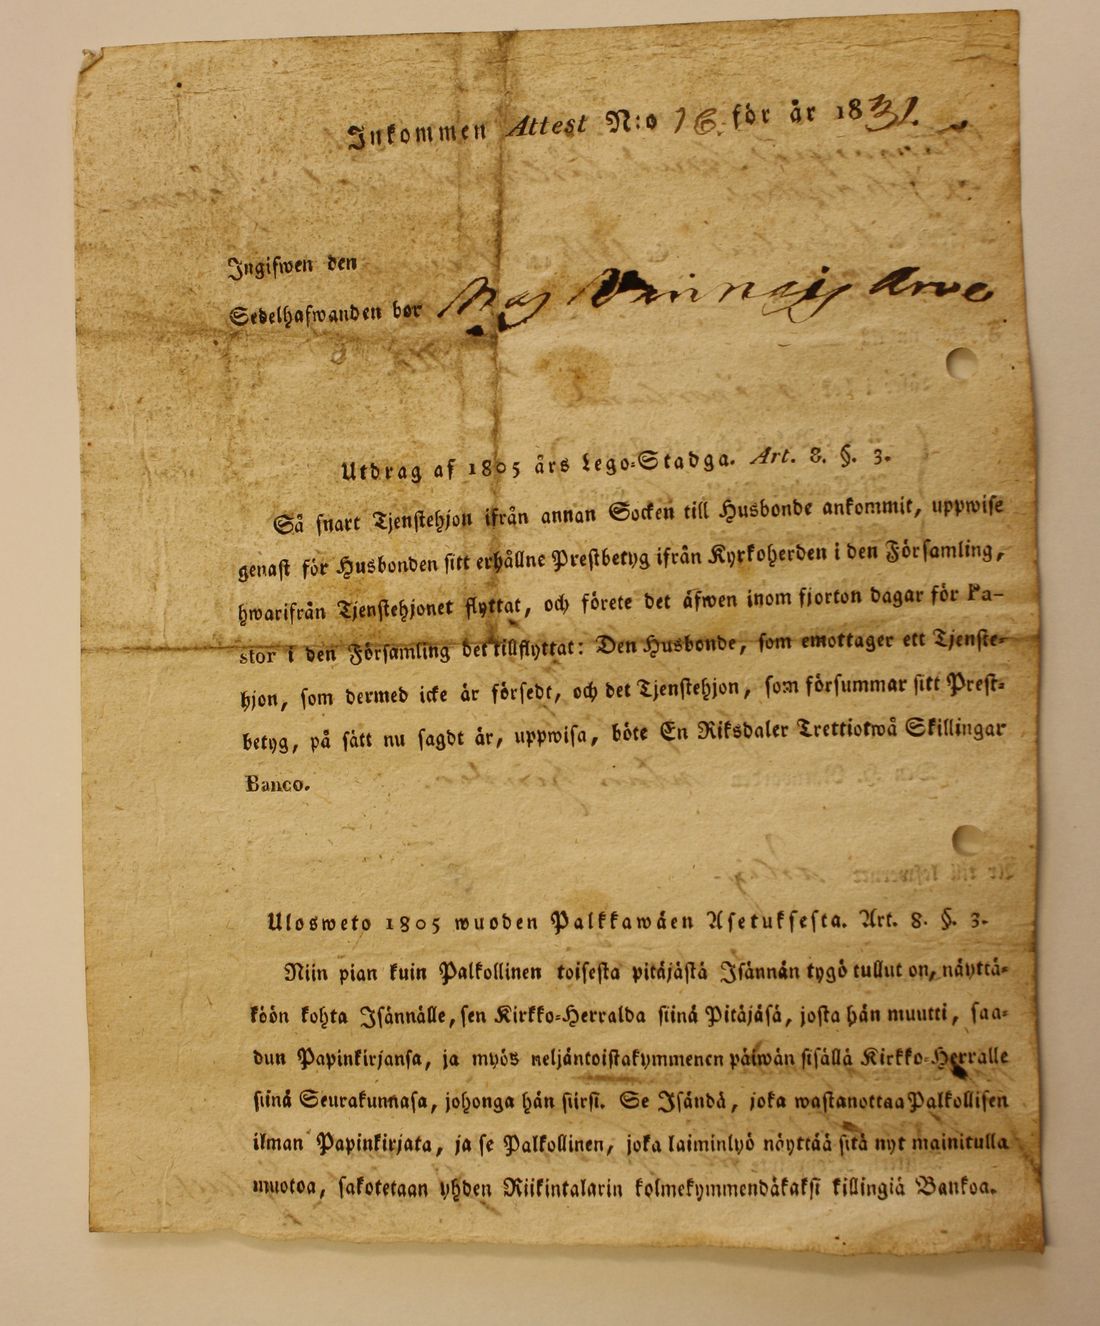 Inkommen Attest N:o 16. för år 1831.
Ingifwen den
Sedelhafwanden bor hos
Utdrag af 1805 års Lego-Stadga. Art. 8. §. 3.
Så snart Tjenstehjon ifrån annan Socken till Husbonde ankommit, uppwise
genast för Husbonden sitt erhållne Prestbetyg ifrån Kyrkoherden i den Församling,
hwarifrån Tjenstehjonet flyttat, och förete det äfwen inom fjorton dagar för Pa-
stor i den Församling det tillflyttat: Den Husbonde, som emottager ett Tjenste-
hjon, som dermed icke är försedt, och det Tjenstehjon, som försummar sitt Prest-
betyg, på sätt nu sagdt är, uppwisa, böte En Riksdaler Trettiotwå Skillingar
Banco.
Ulosweto 1805 wuoden Palkkawäen Asetuksesta. Art. 8. §. 3.
Niin pian kuin Palkollinen toisesta pitäjästä Isännän tygö tullut on, näyttä-
köön kohta Isännälle, sen Kirkko-Herralda siinä Pitäjäsä, josta hän muutti, saa-
dun Papinkirjansa, ja myös neljäntoistakymmenen päiwän sisällä Kirkko-Herralle
siinä Seurakunnasa, johonga hän siirsi. Se Isändä, joka wastanottaa Palkollisen
ilman Papinkirjata, ja se Palkollinen, joka laiminlyö nöyttää sitä nyt mainitulla
muotoa, sakotetaan yhden Riikintalarin kolmekymmendäkaksi killingiä Bankoa.